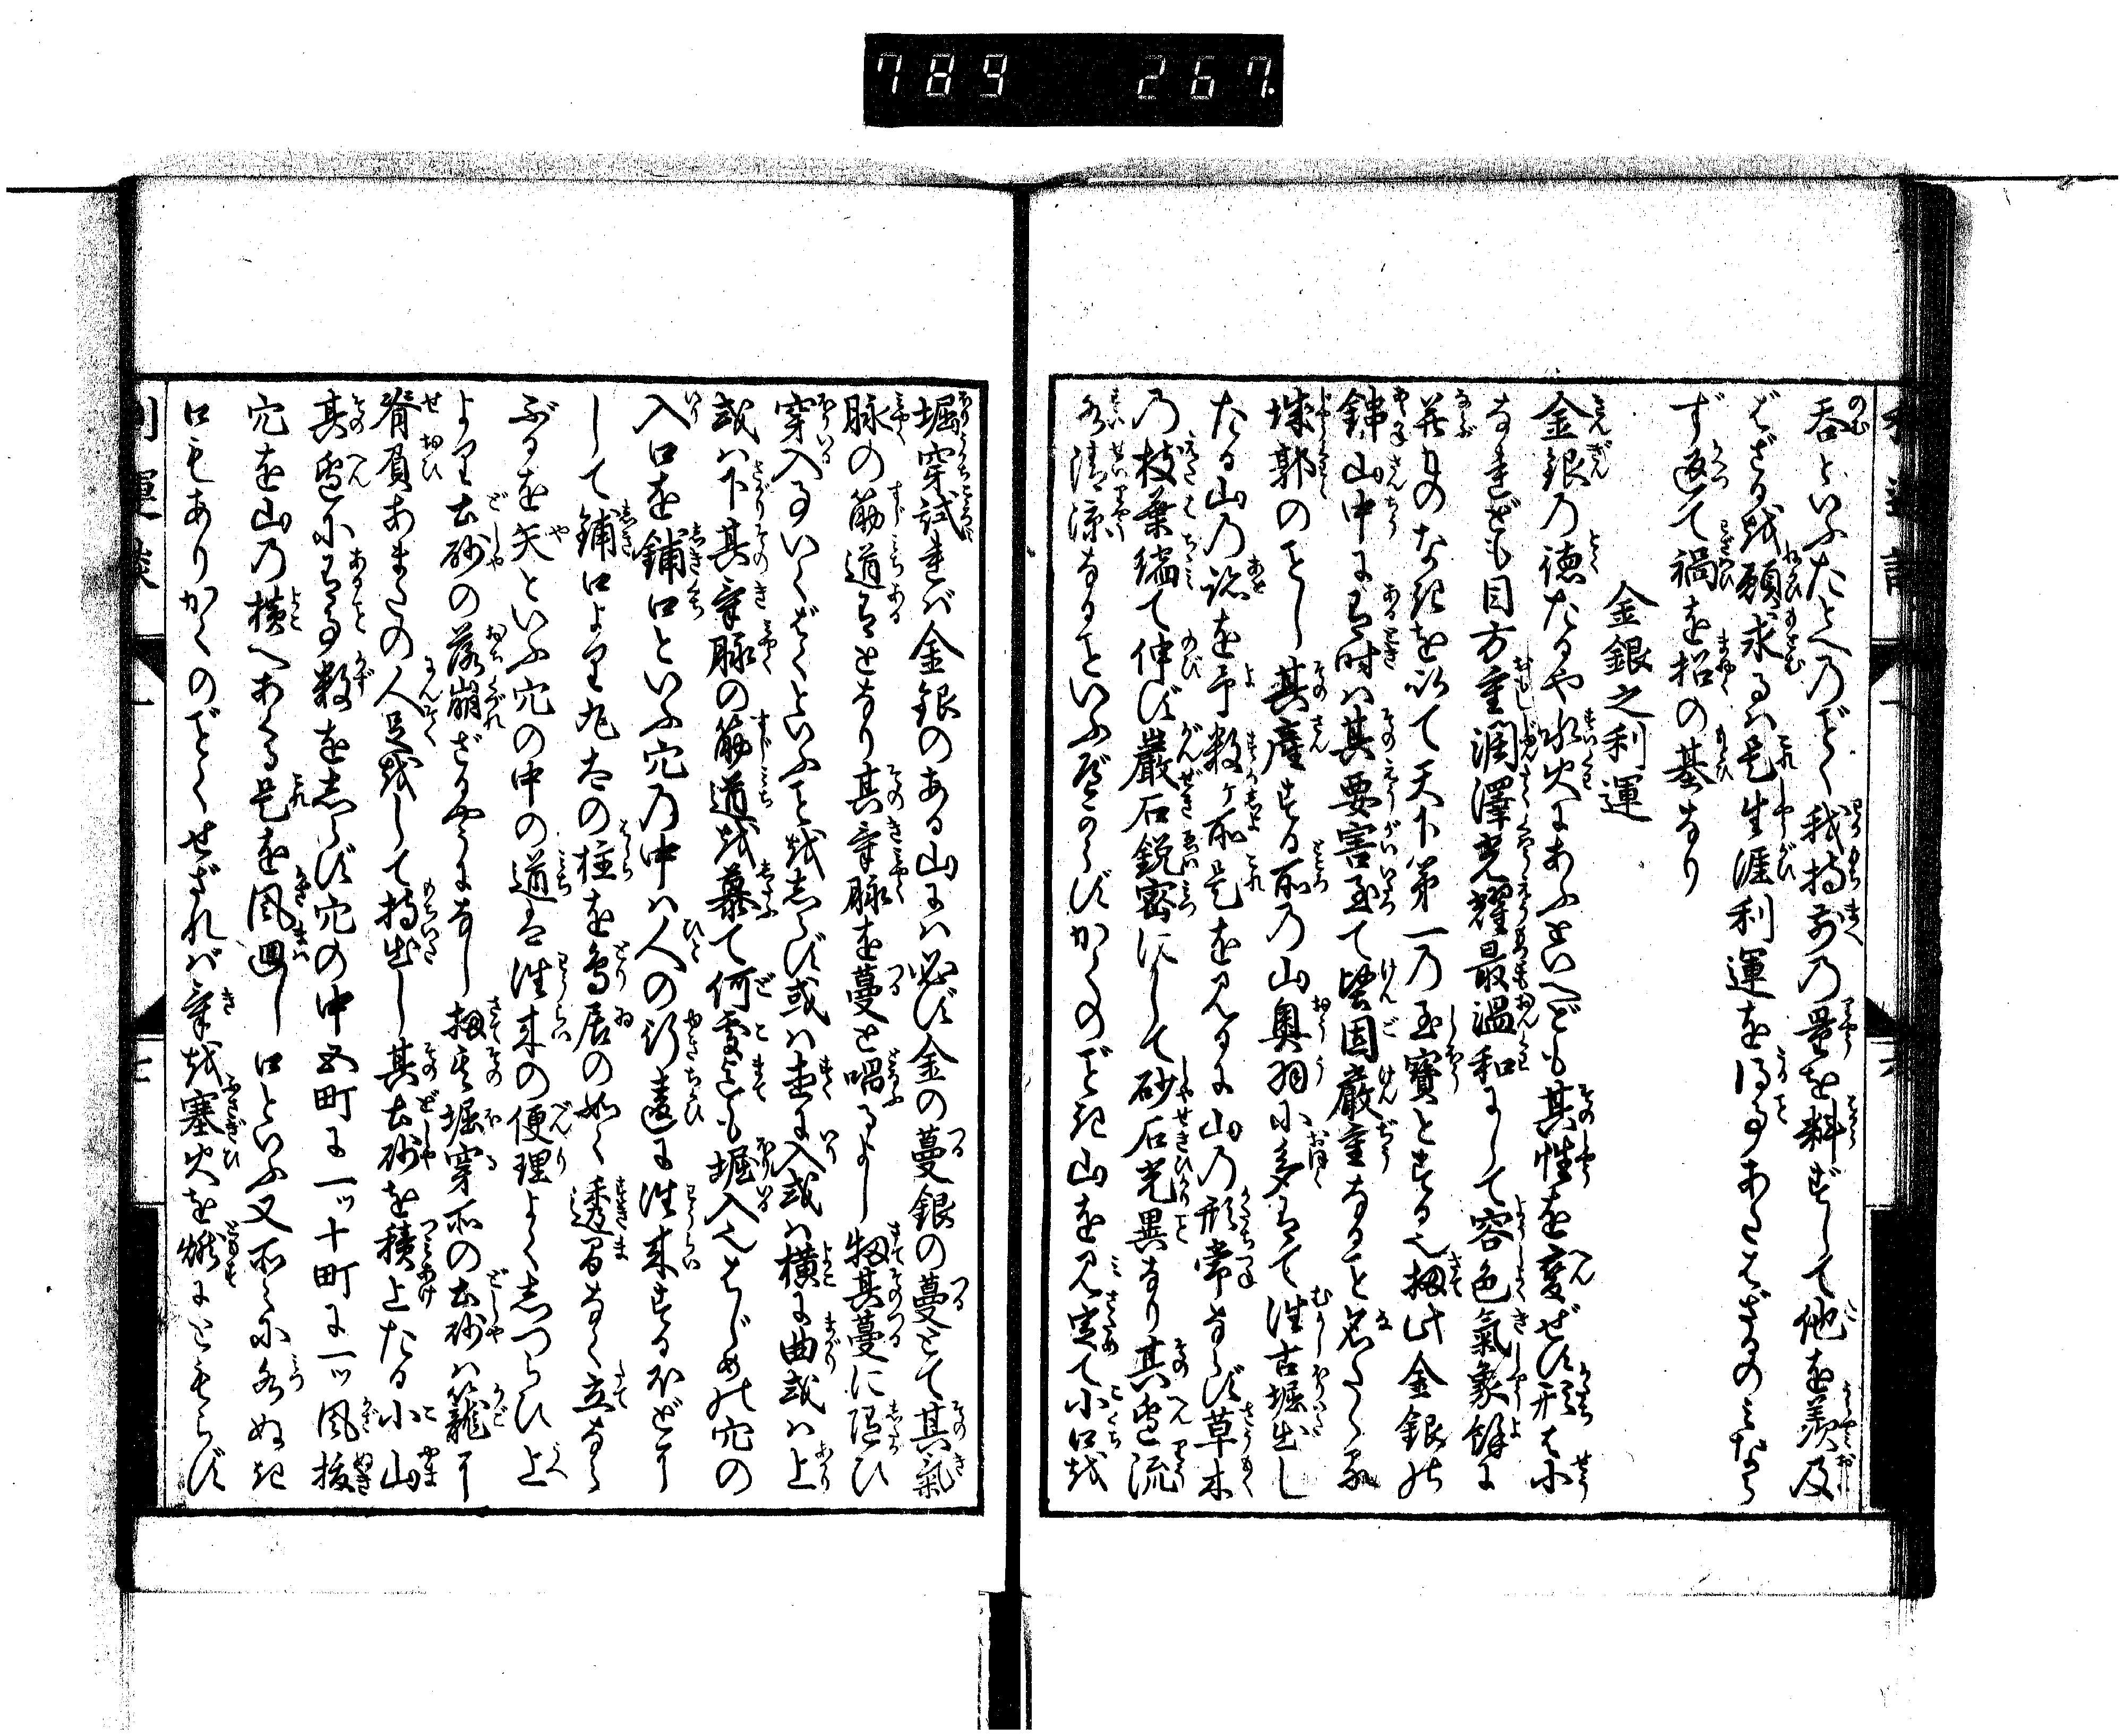 789 267
呑といふたとへのごとく我持前の量を料ずして他を羨及
ばざるを願求るハ是生涯利運を得る事あたはざるのミなら
ず返て禍を招の基なり
金銀之利運
金銀の徳たるや水火にあふといへども其性を変ぜず形ハ小
なれども目方重潤澤光耀最温和にして容色氣象餘に
並ものなきを以て天下第一の至寶とする也扨此金銀の
錬山中に有時ハ其要害至て堅固厳重なること名たゝる
城郭のごとし其産する所の山奥羽に多有て往古堀出し
たる山の跡を予数ヶ所是を見るに山の形常ならず草木
の枝葉縮て伸ず巖石鋭密にして砂石光異なり其邊流
水清涼なることいふべからずかくのごとき山を見定て小口を
堀穿試れバ金銀のある山にハ必ず金の蔓銀の蔓とて其氣
脉の筋道有となり其氣脉を蔓と唱るよし扨其蔓に随ひ
穿入事いくばくといふことを志らず或ハ直に入或ハ横に曲或ハ上
或ハ下其氣脉の筋道を慕て何處迄も堀入也はじめの穴の
入口を鋪口といふ穴の中ハ人の行違に往来するほどに
して鋪口より丸太の柱を鳥居の如く透間なく立なら
ぶるを矢といふ穴の中の道は往来の便理よく志つらひ上
より土砂の落崩ざるやうになし扨其堀穿所の土砂ハ籠に
脊負あまたの人足をして持出し其土砂を積上たる小山
其邊に有事数を志らず穴の中五町に一ッ十町に一ッ風抜
穴を山の横へあくる是を風廻し口といふ又所々に水ぬき
口もありかくのごとくせざれバ氣を塞火を燃にともらず
利運談